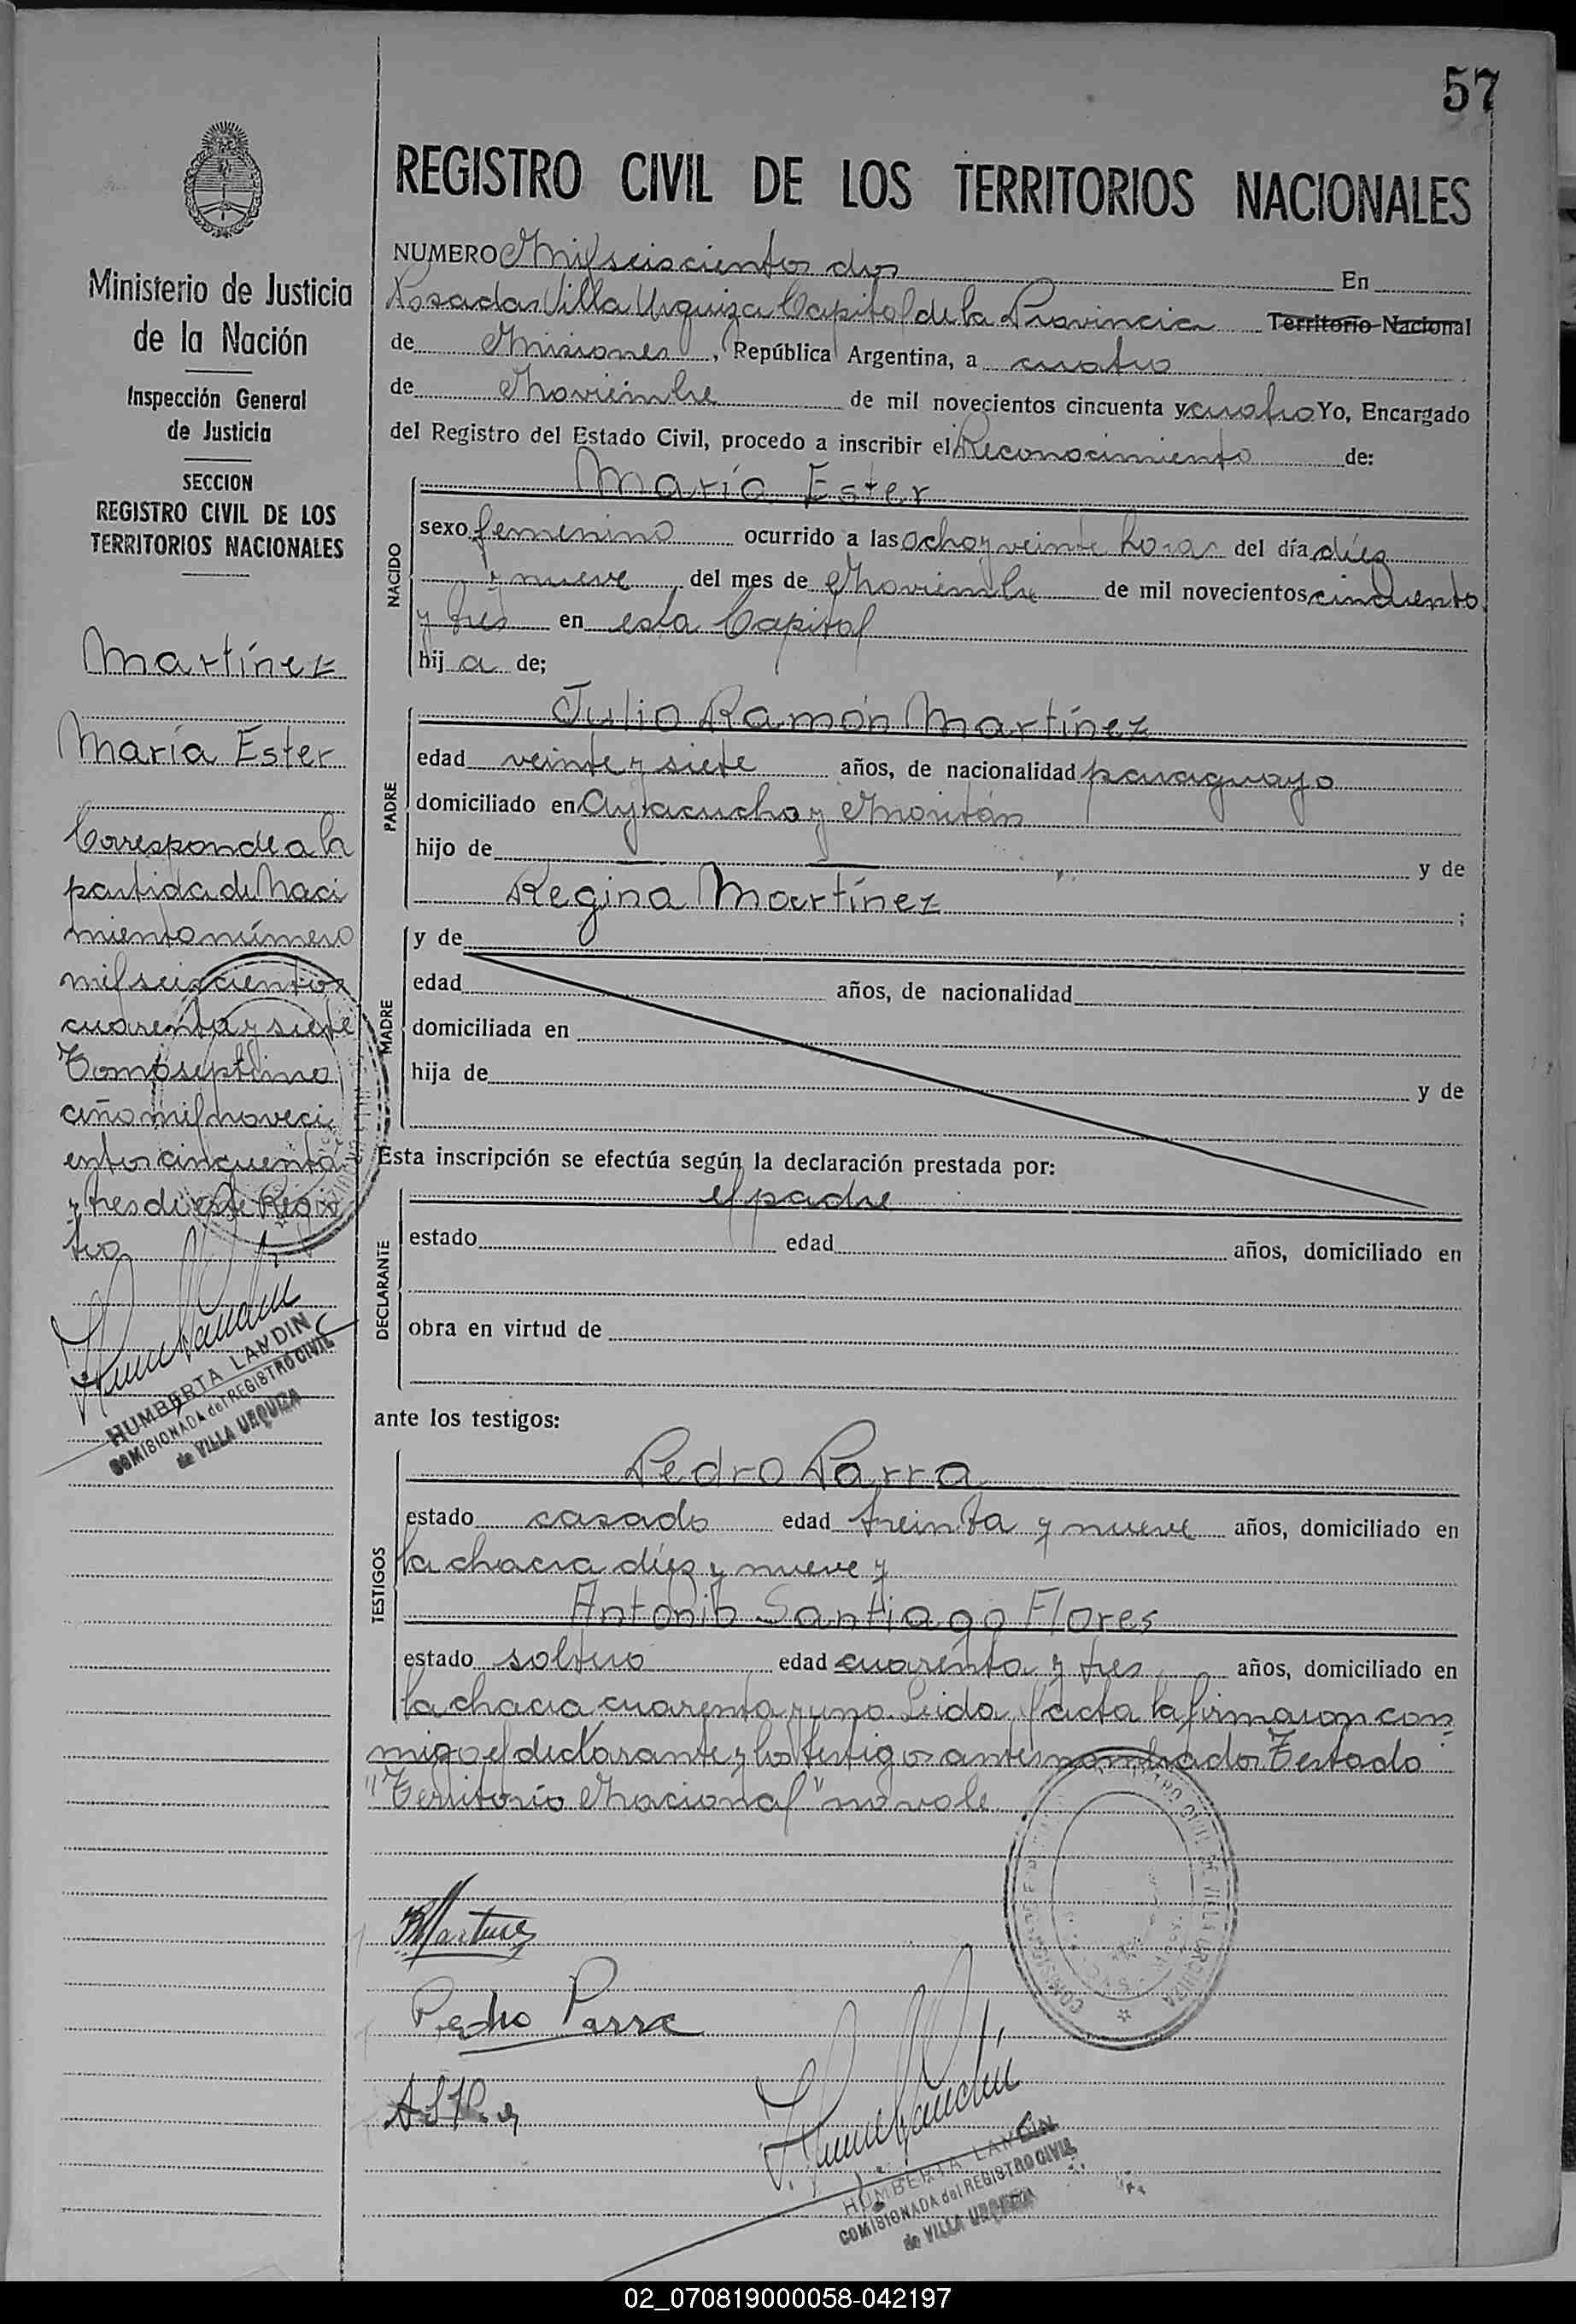 57
REGISTRO CIVIL DE LOS TERRITORIOS NACIONALES
Ministerio de Justicia
de la Nación
Inspección General
de Justicia
SECCION
REGISTRO CIVIL DE LOS
TERRITORIOS NACIONALES
Martínez
María Ester
Corresponde a la
partida de Naci
miento número
mil seiscientos
cuarenta y siete
Tomo septimo
año mil noveci
entos cincuenta
y tres de este Regis
tro
HUMBERTA LANDIN
COMISIONADA del REGISTRO CIVIL
de VILLA URQUIZA
NUMERO Mil seiscientos dos En
Posadas Villa Urquiza Capital de la Provincia Territorio Nacional
de Misiones, República Argentina, a cuatro
de Noviembre de mil novecientos cincuenta y cuatro Yo, Encargado
del Registro del Estado Civil, procedo a inscribir el Reconocimiento de:
NACIDO
María Ester
sexo femenino ocurrido a las ocho y veinte horas del día diéz
y nueve del mes de Noviembre de mil novecientos cincuenta
y tres en esta Capital
hija de;
PADRE
Julio Ramón Martínez
edad veinte y siete años, de nacionalidad paraguayo
domiciliado en Ayacucho y
hijo de y de
Regina Martínez ;
MADRE
y de
edad años, de nacionalidad
domiciliada en
hija de y de
Esta inscripción se efectúa según la declaración prestada por:
DECLARANTE
el padre
estado edad años, domiciliado en
obra en virtud de
ante los testigos:
TESTIGOS
Pedro Parra
estado casado edad treinta y nueve años, domiciliado en
la chacra diéz y nueve y
Antonio Santiago Flores
estado soltero edad cuarenta y tres años, domiciliado en
la chacra cuarenta y uno. Leida el acta la firmaron con
migo el declarante y los testigos antes nombrados Testado
"Territorio Nacional" no vale
Martinez
Pedro Parra
REGISTRO CIVIL DE VILLA URQUIZA
HUMBERTA LANDIN
COMISIONADA del REGISTRO CIVIL
de VILLA URQUIZA
02_070819000058-042197